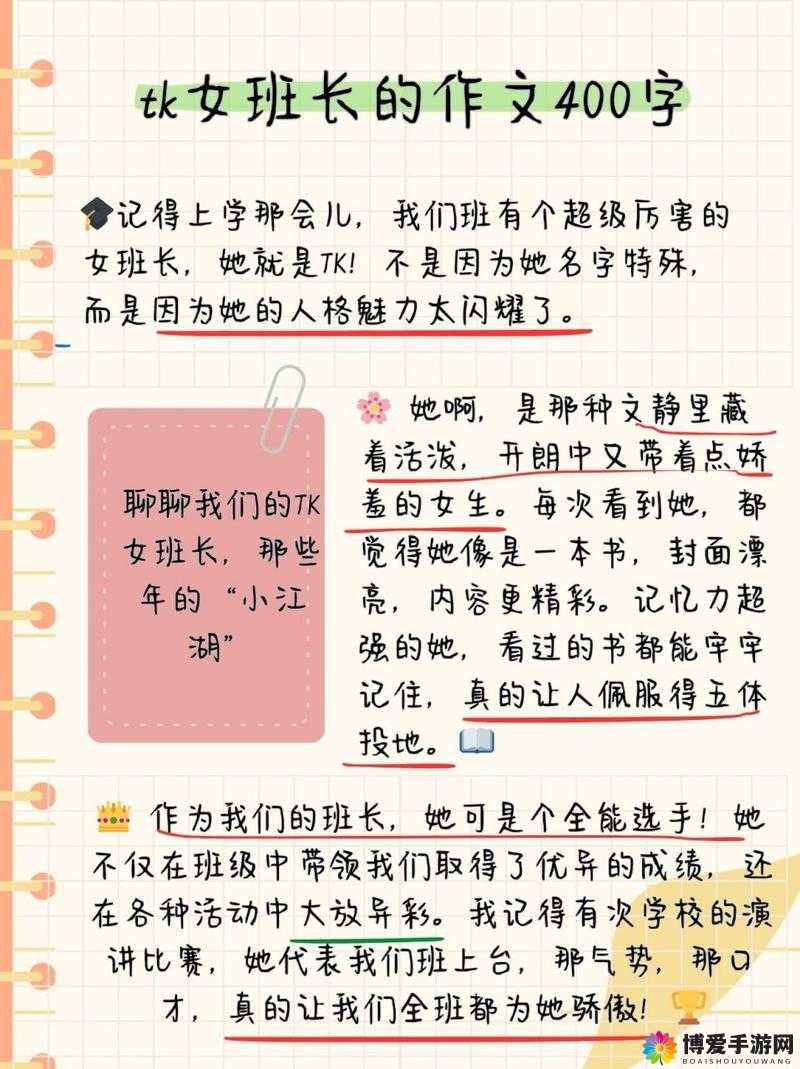 tk女班长的作文400字
记得上学那会儿，我们班有个超级厉害的
女班长，她就是TK！不是因为她名字特殊，
而是因为她的人格魅力太闪耀了。
聊聊我们的TK
女班长，那些
年的“小江
湖”
她啊，是那种文静里藏
着活泼，开朗中又带着点娇
羞的女生。每次看到她，都
觉得她像是一本书，封面漂
亮，内容更精彩。记忆力超
强的她，看过的书都能牢牢
记住，真的让人佩服得五体
投地。
作为我们的班长，她可是个全能选手！她
不仅在班级中带领我们取得了优异的成绩，还
在各种活动中大放异彩。我记得有次学校的演
讲比赛，她代表我们班上台，那气势，那口
才，真的让我们全班都为她骄傲！
博爱手游网
BOAISHOUYOUWANG